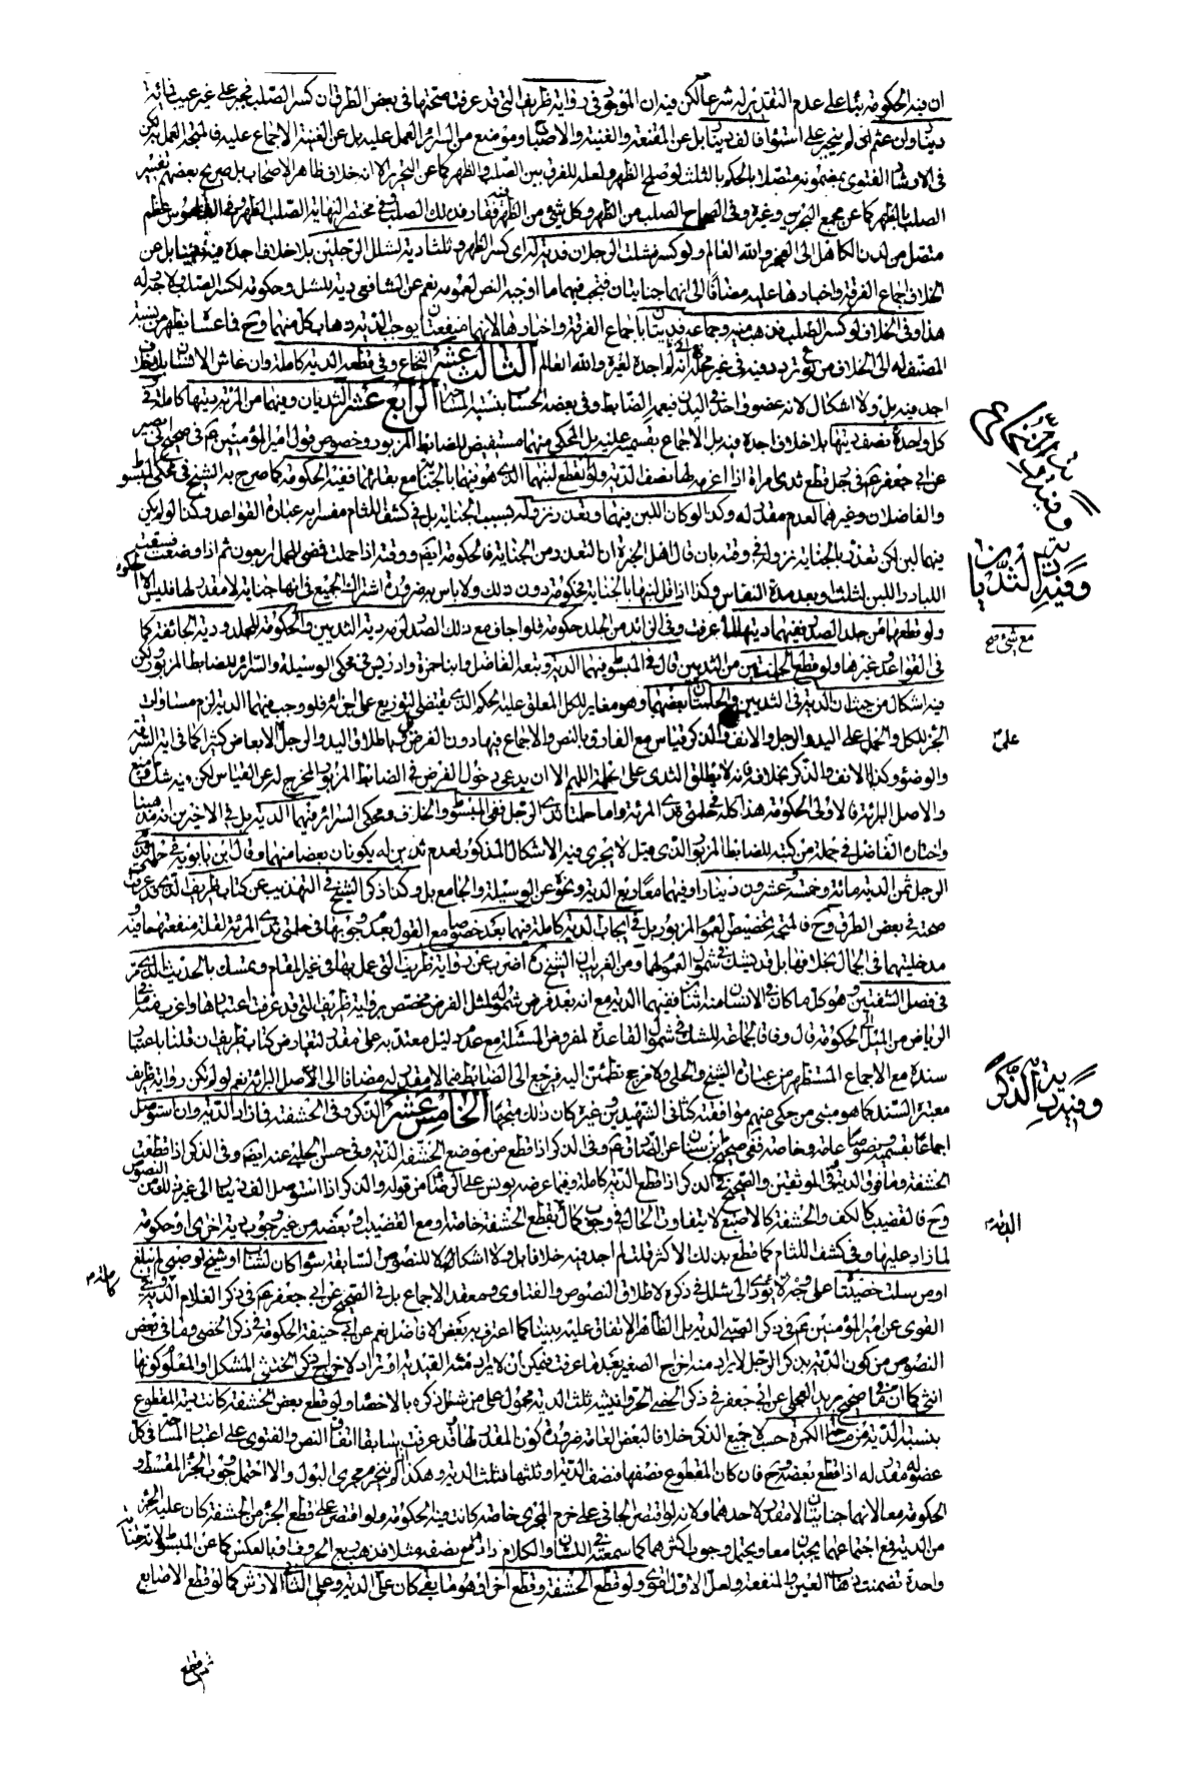 ان فيه الحكومة بناء على عدم التقدير له شرعا لكن فيه ان الموجود في رواية ظريف التي قد عرفت صحتها في بعض الطرق ان كسر الصلب فجبر على غير عيب فمائة
دينار وان عثم
في الارشاد الفتوى بمضمونه متصلا بالحكم بالثلث لو صلح الظهر ولعله للفرق بين الصلب والظهر كما عن التحرير الا انه خلاف ظاهر الاصحاب بل صريح بعضهم تفسير
الصلب بالظهر كما عن مجمع البحرين وغيره وفي الصحاح الصلب من الظهر وكل شيء من الظهر فيه فقار فذلك الصلب وفي مختصر النهاية الصلب الظهر وفي القاموس عظم
متصل من لدن الكاهل الى العجز والله العالم ولو كسر فشلت الرجلان فدية له اى كسر الظهر وثلثا دية لشلل الرجلين بلا خلاف اجده فيه بيننا بل عن
الخلاف اجماع الفرقة واخبارها عليه مضافا الى انهما جنايتان فيجب فيهما ما اوجبه النص لعمومه نعم عن الشافعي دية للشلل وحكومة لكسر الصلب ولا وجه له
هذا وفي الخلاف لو كسر الصلب فذهب مشيه وجماعه فديتان باجماع الفرقة واخبارها لانهما منفعتان يوجب الدية ذهاب كل منهما وح فما عساه يظهر من نسبة
المصنف له الى الخلاف من نوع تردد فيه في غير محله مع انه لم اجده لغيره والله العالم الثالث عشر النخاع وفي قطعه الدية كاملة وان عاش الانسان بلا خلاف
اجده فيه بل ولا اشكال لانه عضو واحد في البدن فيعمه الضابط وفي بعضه الحساب بنسبة المساحة الرابع عشر الثديان وفيهما من المرئة ديتها كاملة وفي
كل واحدة نصف ديتها بلا خلاف اجده فيه بل الاجماع بقسميه عليه بل المحكي منهما مستفيض للضابط المزبور وخصوص قول امير المؤمنين ع في صحيح ابي بصير
عن ابي جعفر ع في رجل قطع ثدى امرأة اذا اغرمه لها نصف الدية ولو انقطع لبنهما الذي هو فيهما بالجناية مع بقائهما ففيه الحكومة كما صرح به الشيخ في محكي المبسوط
والفاضلان وغيرهما لعدم مقدر له وكذا لو كان اللبن فيهما وتعذر نزوله بسبب الجناية بل في كشف اللثام مفسرا به عبارة القواعد وكذا لو لم يكن
فيهما لبن لكن تعذر بالجناية نزوله في وقته بان قال اهل الخبرة ان التعذر من الجناية فالحكومة ايضا ووقته اذا حملت فمضى للحمل اربعون ثم اذا وضعت فسقت
اللباء در اللبن لثلث وبعد مدة النفاس وكذا اذا قل لبنها بالجناية فحكومة دون ذلك ولا باس به ضرورة اشتراك الجميع في انها جناية لا مقدر لها فليس الا الحكومة
ولو قطعهما من جلد الصدر ففيهما ديتهما لما عرفت وفي الزائد من الجلد حكومة فلو اجاف مع ذلك الصدر لزمه دية الثديين والحكومة للجلد ودية الجائفة كما
في القواعد وغيرها ولو قطع الحلمتين من الثديين قال في المبسوط فيهما الدية وتبعه الفاضل وابنا حمزة وادريس في محكي الوسيلة والسرائر للضابط المزبور لكن
فيه اشكال من حيث ان الدية في الثديين والحلمتان بعضهما وهو مغاير للكل المعلق عليه حكم الدية المقتضى للتوزيع على اجزائه فلو وجب فيهما الدية لزم مساوات
الجزء للكل والحمل على اليد والرجل والانف والذكر قياس مع الفارق بالنص والاجماع فيها دون الفرض بل باطلاق اليد والرجل الابعاض كثيرا كما في اية السرقة
والوضوء وكذا الانف والذكر بخلافه فانه لا يطلق الثدى على الحلمة اللهم الا ان يدعى دخول الفرض في الضابط المزبور المخرج له عن القياس لكن فيه شك او منع
والاصل البرائة فالاولى الحكومة هذا كله في حلمتي ثدى المرئة واما حلمتا ثدى الرجل ففي المبسوط والخلاف ومحكي السرائر فيهما الدية بل في الاخيرين انه مذهبنا
واختاره الفاضل في جملة من كتبه للضابط المزبور الذى قيل لا يجرى فيه الاشكال المذكور لعدم ثديين له يكونان بعضا منهما وقال ابن بابويه في حلمة ثدى
الرجل ثمن الدية مائة وخمسة وعشرون دينارا وفيهما معا ربع الدية ونحوه عن الوسيلة والجامع بل وكذا ذكر الشيخ في التهذيب عن كتاب ظريف الذي عرفت
صحته في بعض الطرق وح فالمتجه تخصيص العموم المزبور بل في ايجاب الدية كاملة فيهما بعد خصوصا مع القول بعدم وجوبها في حلمتي ثدى المرئة لقلة منفعتهما فيه
مدخليتهما في الجمال بخلافها بل قد يشك في شمول العموم لهما ومن الغريب ان الشيخ كم اضرب عن رواية ظريف التي عمل بها في غير المقام وتمسك بالحديث الذى مر
في فصل الشفتين وهو كل ما كان في الانسان منه اثنان ففيهما الدية مع انه بعد فرض شموله لمثل الفرض مخصص برواية ظريف التي قد عرفت اعتبارها واغرب منه ما في
الرياض من الميل الى الحكومة قال وفاقا لجماعة للشك في شمول القاعدة لمفروض المسئلة مع عدم دليل معتد به على مقدر لتعارض كتاب ظريف ان قلنا باعتبار
سنده مع الاجماع المستظهر من عبارة الشيخ والحلي ولا مرجح تطمئن اليه فيرجع الى الضابط فيما لا مقدر له مضافا الى الاصل البرائة نعم لو لم تكن رواية ظريف
معتبرة السند كما هو مبنى من حكى عنهم موافقته كثانى الشهيدين وغيره كان ذلك متجها الخامس عشر الذكر وفي الحشفة فما زاد الدية وان استوصل
اجماعا بقسميه ونصوصا عامة وخاصة ففي صحيح ابن سنان عن الصادق ع وفي الذكر اذا قطع من موضع الحشفة الدية وفي حسن الحلبي عنه ايضا وفي الذكر اذا قطعت
الحشفة وما فوق الدية وفي الموثقين والصحيح في الذكر اذا قطع الدية كاملة وفيما عرضه يونس على الرضا ع من قوله والذكر اذا استوصل الف دينار الى غير ذلك من النصوص
وح فالقضيب كالكف والحشفة كالاصبع لا يتفاوت الحال في وجوب كمال الدية بقطع الحشفة خاصة او مع القضيب او بعضه من غير وجوب دية اخرى او حكومة
لما زاد عليها وفي كشف اللثام كما قطع بذلك الاكثر قلت لم اجد فيه خلافا بل ولا اشكال للنصوص السابقة سواء كان لشاب او شيخ او صبي لم يبلغ
او من سلت خصيتاه على وجه لا يؤدى الى شلل في ذكره لاطلاق النصوص والفتاوى ومعقد الاجماع بل في الصحيح عن ابي جعفر ع في ذكر الغلام الدية وفي
القوى عن امير المؤمنين ع في ذكر الصبي الدية بل الظاهر الاتفاق عليه بيننا كما اعترف به بعض الافاضل نعم عن ابي حنيفة الحكومة في ذكر الخصى وما في بعض
النصوص من كون الدية بذكر الرجل لا يراد منه اخراج الصغير بعد ما عرفت فيمكن ان لا يراد منه القيدية او يراد لاخراج ذكر الخنثى المشكل او المعلوم كونها
انثى كما ان ما في صحيح بريد العجلي عن ابي جعفر في ذكر الخصي الحر وانثييه ثلث الدية محمول على من شل ذكره بالاخصاء ولو قطع بعض الحشفة كانت فيه المقطوع
بنسبة الدية من مساحة الكمرة حسب لا جميع الذكر خلافا لبعض العامة ضرورة كون المقدر لها وقد عرفت سابقا اتفاق النص والفتوى على اعتبار المساحة في كل
عضو له مقدر له اذا قطع بعضه وح فان كان المقطوع نصفها فنصف الدية او ثلثها فثلث الدية وهكذا ان لم ينخرم مجرى البول والا احتمل وجوب الجزء المقسط و
الحكومة معا لانهما جنايتان لا مقدر لاحدهما ولانه لو اقتصر الجاني على خرم المجرى خاصة كانت فيه الحكومة ولو اقتصر على قطع الجزء من الحشفة كان عليه الجزء
من الدية فمع اجتماعهما يجبان معا ويحتمل وجوب اكثرهما كما سمعته في اللسان والكلام اذا قطع نصفه مثلا فذهب ربع الحروف او بالعكس كما عن المبسوط لانه جناية
واحدة تضمنت ذهاب العين والمنفعة ولعل الاول اقوى ولو قطع الحشفة وقطع اخر او هو ما بقي كان على الاول الدية وعلى الثاني الارش كما لو قطع الاصابع
ثم قطع
وفيه دية النخاع
وفيه دية الثديان
على
وفيه دية الذكر
الدية
كاملة